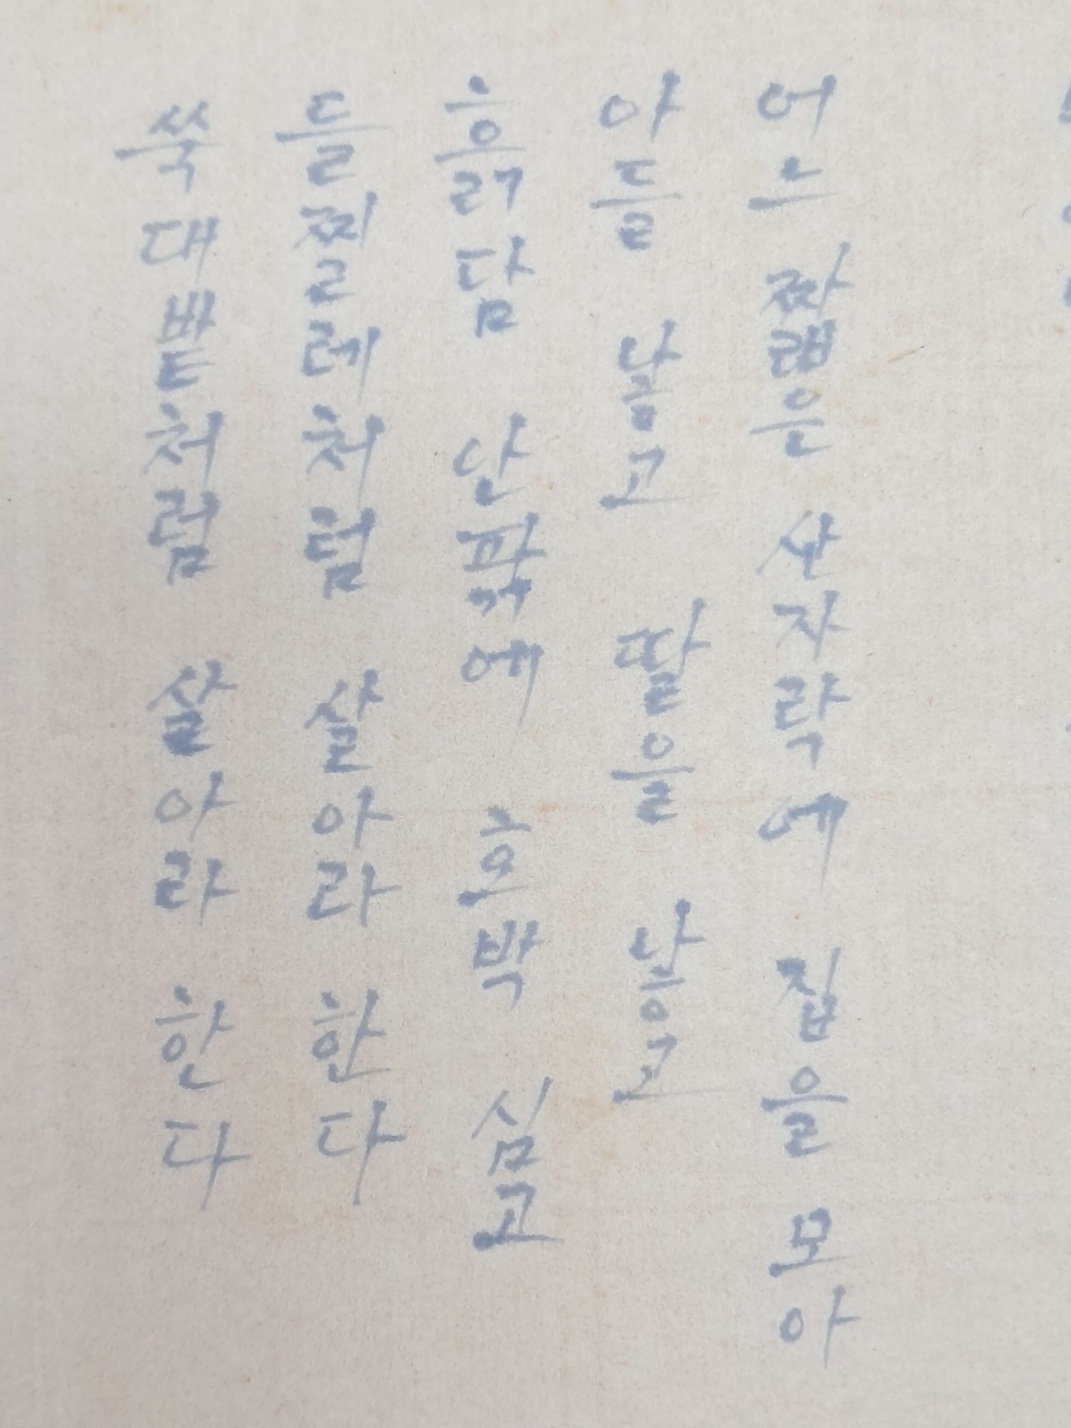 어느 짧은 산자락에 집을 모아
아들 낳고 딸을 낳고
흙담 안팎에 호박 심고
들찔레처럼 살아라 한다
쑥대밭처럼 살아라 한다